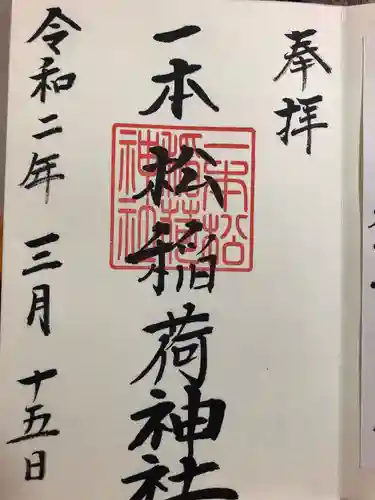 奉拝
一本松稲荷神社
一本松稲荷神社
令和二年三月十五日